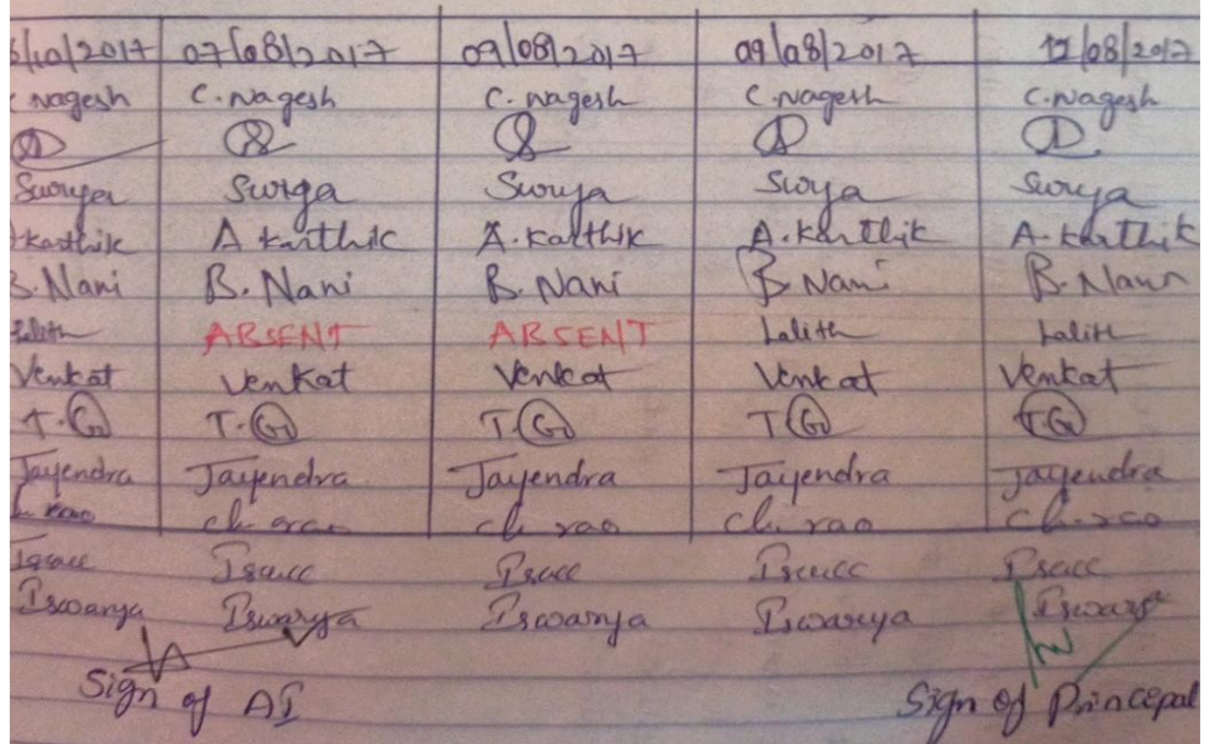 /10/2017 07/08/2017 09/08/2017 09/08/2017 12/08/2017
Nagesh C. Nagesh C. Nagesh C. Nagesh C. Nagesh
Suorya Surya Surya Surya Surya
karthik A karthik A. Karthik A. Karthik A. Karthik
B. Nani B. Nani B. Nani B Nani B. Nani
Lalith ABSENT ABSENT Lalith Lalith
Venkat Venkat Venkat Venkat Venkat
T. G T. G T G T G T G
Jayendra Jayendra Jayendra Jayendra Jayendra
rao ch. rao ch. rao ch. rao ch. rao
Isacc Isacc Isacc Isacc Isacc
Iswarya Iswarya Iswarya Iswarya Iswarya
Sign of AI Sign of Princepal